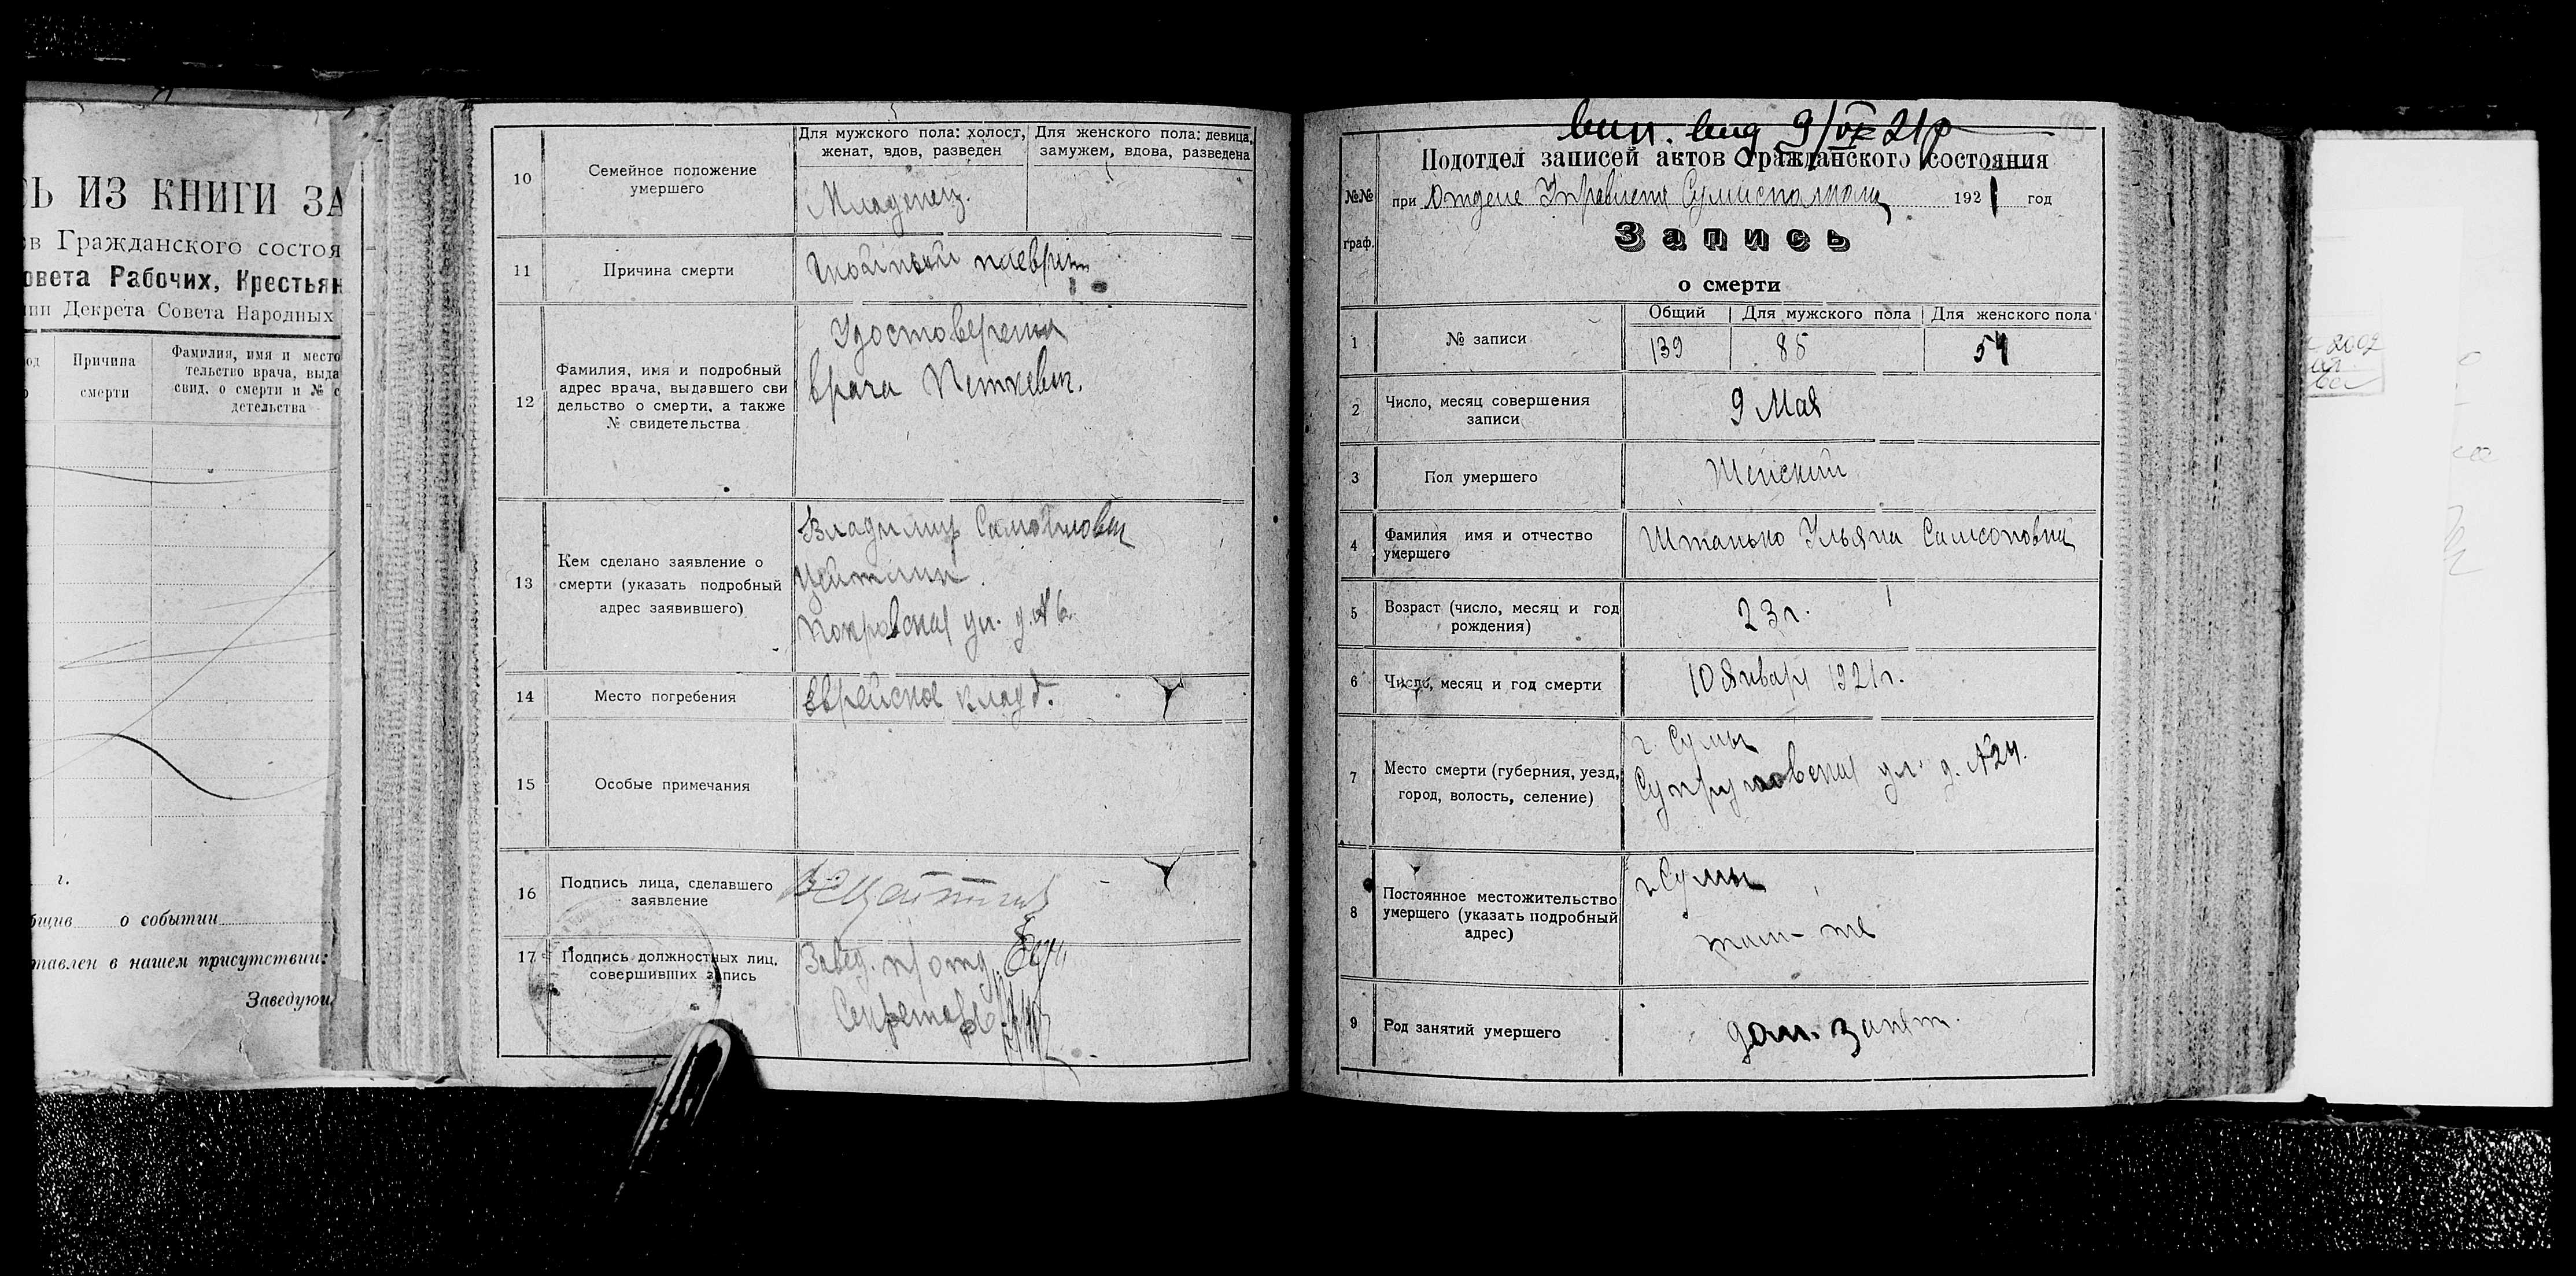 Ь ИЗ КНИГИ ЗА
в Гражданского состоя
овета Рабочих, Крестьян
ии Декрета Совета Народных
од
Причина
смерти
Фамилия, имя и место
тельство врача, выда
свид. о смерти и № с
детельства
г.
бщив о событии
тавлен в нашем присутствии:
Заведующ
Для мужского пола: холост, женат, вдов, разведен
Для женского пола: девица, замужем, вдова, разведена
10
Семейное положение
умершего
Младенец.
11
Причина смерти
Гнойный плеврит
12
Фамилия, имя и подробный
адрес врача, выдавшего сви
дельство о смерти, а также
№ свидетельства
Удостоверение
врача Петкевич.
13
Кем сделано заявление о
смерти (указать подробный
адрес заявившего)
Владимир Самойлович
Цейтлин.
Покровская ул. д. № 6
14
Место погребения
Еврейское кладб.
15
Особые примечания
16
Подпись лица, сделавшего
заявление
17
Подпись должностных лиц,
совершивших запись
Завед. п/отд.
Секретарь
9/VI 21
Подотдел записей актов Гражданского состояния
№№
граф.
при Отделе Управления Сумисполкома 1921 год
Запись
о смерти
1
№ записи
Общий
Для мужского пола
Для женского пола
139
85
54
2
Число, месяц совершения
записи
9 Мая
3
Пол умершего
Женский
4
Фамилия имя и отчество
умершего
Штанько Ульяна Самсоновна
5
Возраст (число, месяц и год
рождения)
23 г.
6
Число, месяц и год смерти
10 Января 1921 г.
7
Место смерти (губерния, уезд,
город, волость, селение)
г. Сумы
Супруновская ул. д. № 24.
8
Постоянное местожительство
умершего (указать подробный
адрес)
г. Сумы
там-же
9
Род занятий умершего
дом. занят.
2002